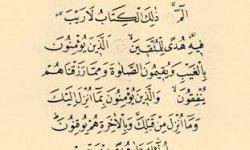 الٓمٓ ۚ ذٰلِكَ الْكِتَابُ لَا رَيْبَ ۛ
فِيهِ ۛ هُدًى لِلْمُتَّقِينَ ۙ الَّذِينَ يُؤْمِنُونَ
بِالْغَيْبِ وَيُقِيمُونَ الصَّلٰوةَ وَمِمَّا رَزَقْنَاهُمْ
يُنْفِقُونَ ۙ وَالَّذِينَ يُؤْمِنُونَ بِمَا أُنْزِلَ إِلَيْكَ
وَمَا أُنْزِلَ مِنْ قَبْلِكَ وَبِالْآخِرَةِ هُمْ يُوقِنُونَ ۗ